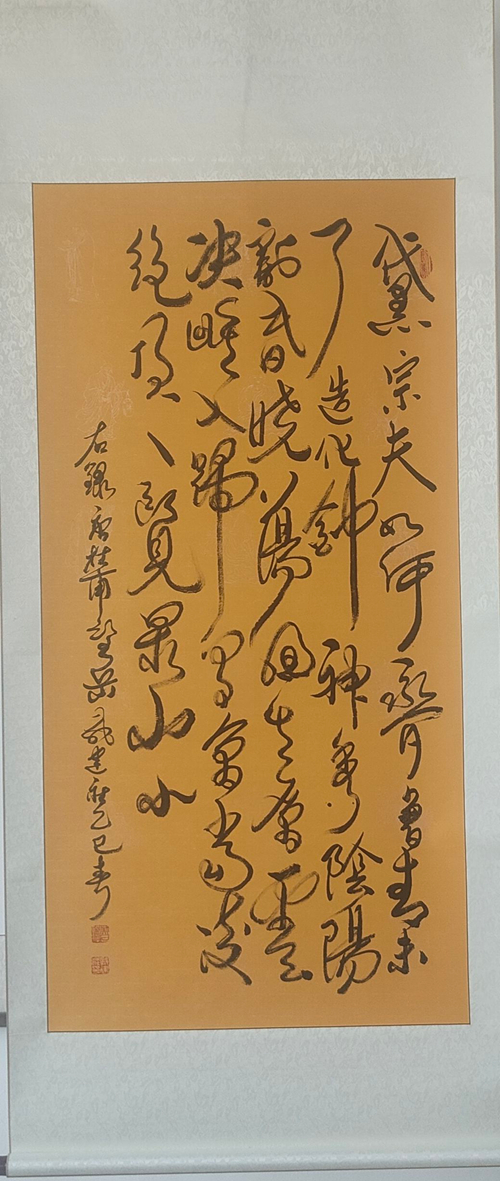 黛宗夫如何齊魯青未
了造化鍾神秀陰陽
割昏曉蕩胸生層雲
决眥入歸鳥會當凌
絕頂一覽眾山小
右錄唐杜甫望岳 乙巳春